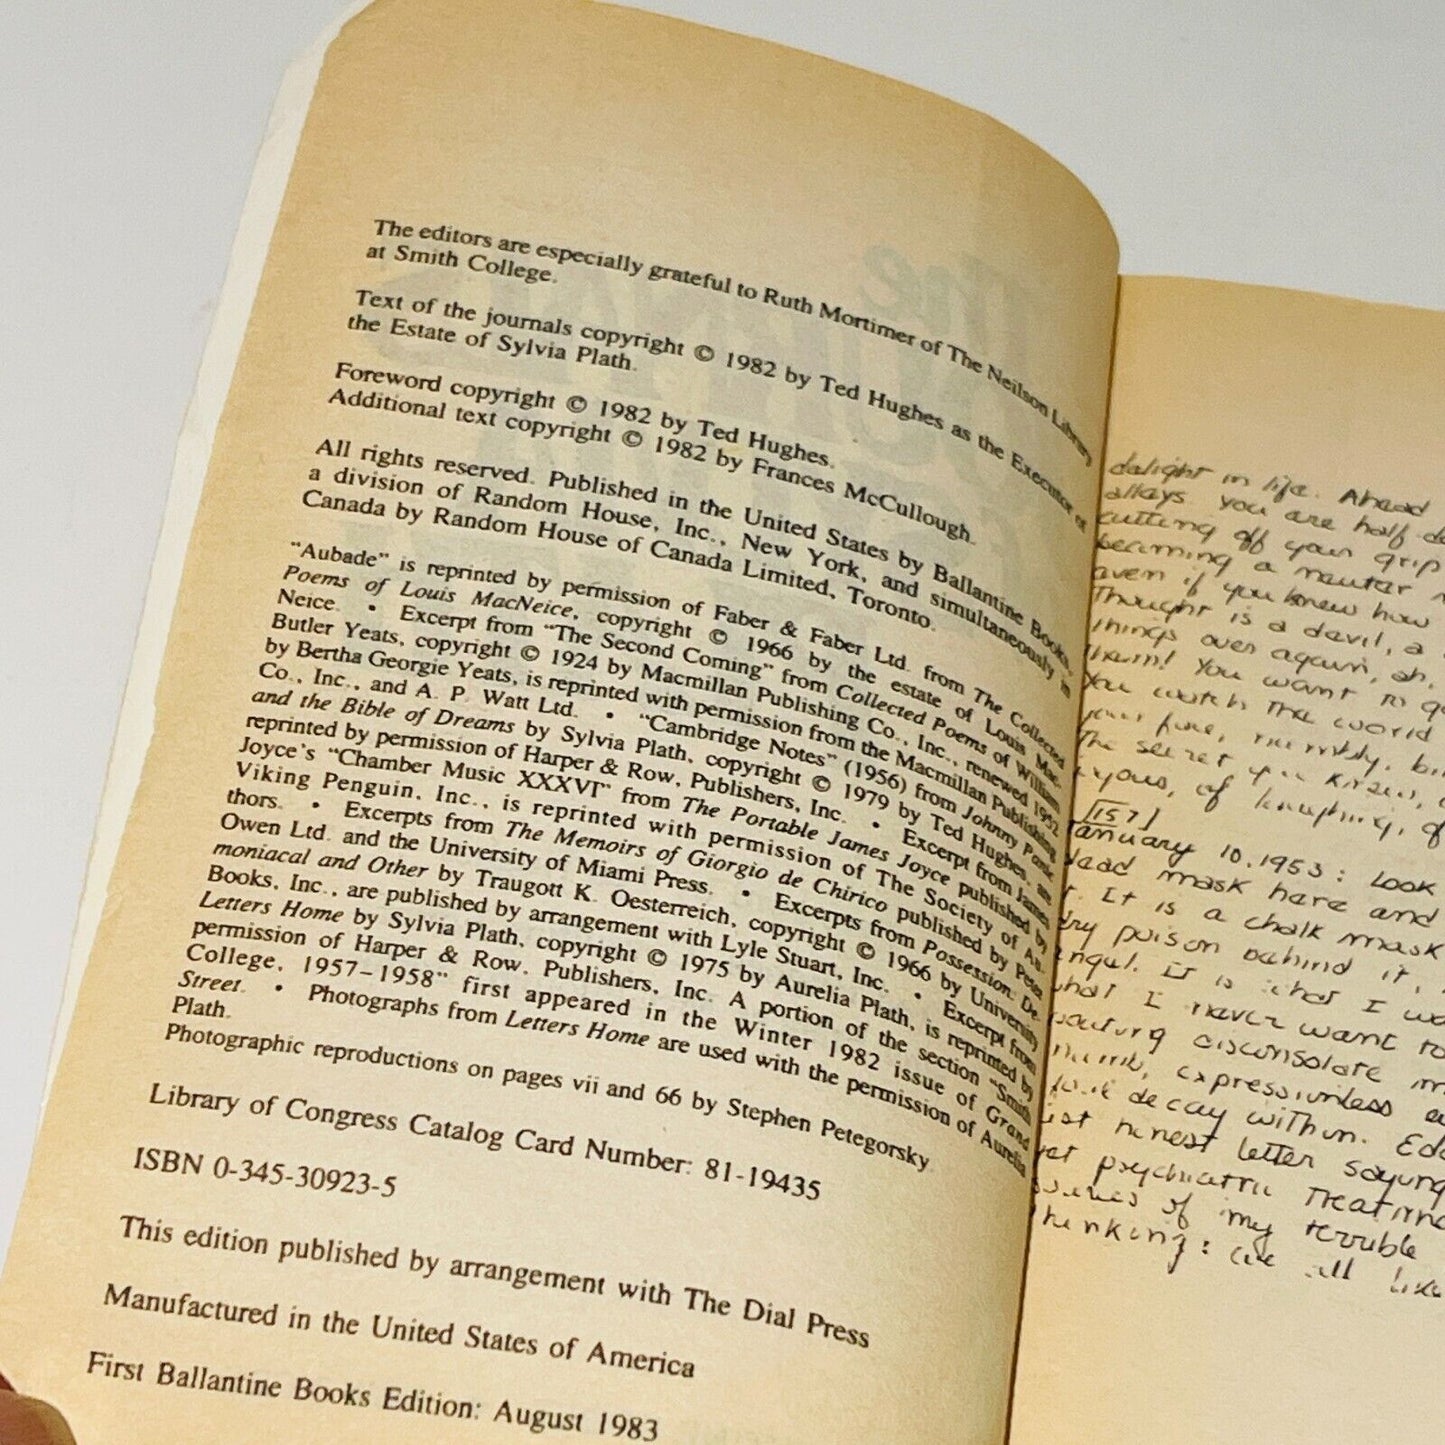 The editors are especially grateful to Ruth Mortimer of The Neilson Library
at Smith College.
Text of the journals copyright © 1982 by Ted Hughes as the Executor of
the Estate of Sylvia Plath.
Foreword copyright © 1982 by Ted Hughes.
Additional text copyright © 1982 by Frances McCullough.
All rights reserved. Published in the United States by Ballantine Books,
a division of Random House, Inc., New York, and simultaneously in
Canada by Random House of Canada Limited, Toronto.
"Aubade" is reprinted by permission of Faber & Faber Ltd. from The Collected
Poems of Louis MacNeice, copyright © 1966 by the estate of Louis Mac-
Neice. • Excerpt from "The Second Coming" from Collected Poems of William
Butler Yeats, copyright © 1924 by Macmillan Publishing Co., Inc., renewed 1952
by Bertha Georgie Yeats, is reprinted with permission from the Macmillan Publishing
Co., Inc., and A. P. Watt Ltd. • "Cambridge Notes" (1956) from Johnny Panic
and the Bible of Dreams by Sylvia Plath, copyright © 1979 by Ted Hughes, are
reprinted by permission of Harper & Row, Publishers, Inc. • Excerpt from James
Joyce's "Chamber Music XXXVI" from The Portable James Joyce published by
Viking Penguin, Inc., is reprinted with permission of The Society of Au-
thors. • Excerpts from The Memoirs of Giorgio de Chirico published by Peter
Owen Ltd. and the University of Miami Press. • Excerpts from Possession: De-
moniacal and Other by Traugott K. Oesterreich, copyright © 1966 by University
Books, Inc., are published by arrangement with Lyle Stuart, Inc. • Excerpt from
Letters Home by Sylvia Plath, copyright © 1975 by Aurelia Plath, is reprinted by
permission of Harper & Row, Publishers, Inc. A portion of the section "Smith
College, 1957–1958" first appeared in the Winter 1982 issue of Grand
Street. • Photographs from Letters Home are used with the permission of Aurelia
Plath.
Photographic reproductions on pages vii and 66 by Stephen Petegorsky.
Library of Congress Catalog Card Number: 81-19435
ISBN 0-345-30923-5
This edition published by arrangement with The Dial Press
Manufactured in the United States of America
First Ballantine Books Edition: August 1983
delight in life. Ahead
alleys you are half-
cutting off your grip
becoming a neuter
even if you knew how
Thought is a devil, a
things over again, oh,
them! You want to
You watch the world
your fine, nimbly,
The secret
of laughing, of
157
January 10, 1953: Look
dead mask here and
It is a chalk mask
dry poison behind it,
angel. It is what I
what I never want to
pouting disconsolate
numb, expressionless
decay within.
honest letter saying
psychiatric treatment
series of my terrible
thinking: we all like